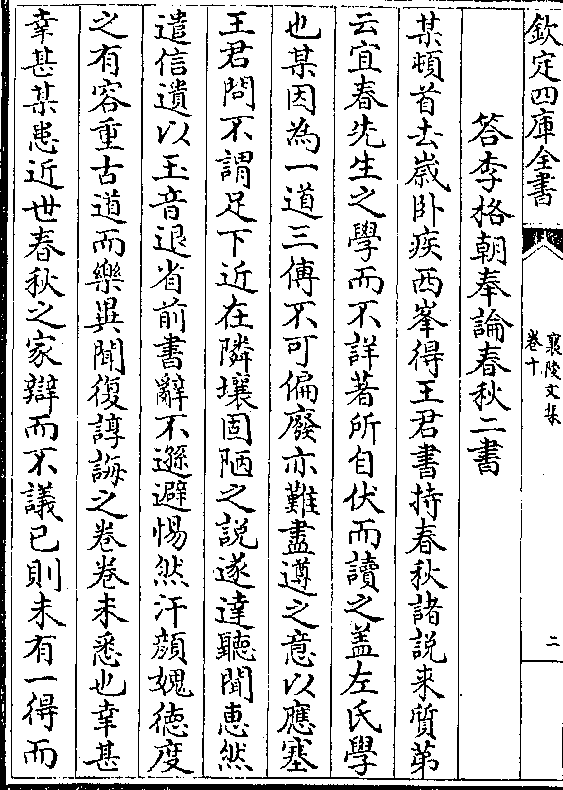 欽定四庫全書
襄陵文集
卷十
二
答李格朝奉論春秋二書
某頓首去嵗卧疾西峯得王君書持春秋諸説来質第
云宜春先生之學而不詳著所自伏而讀之盖左氏學
也某因為一道三傳不可偏廢亦難盡遵之意以應塞
王君問不謂足下近在隣壤固陋之説遂達聽聞恵然
遣信遺以玉音退省前書辭不遜避惕然汗顔媿徳度
之有容重古道而樂異聞復諄誨之卷卷未悉也幸甚
幸甚某患近世春秋之家辯而不議已則未有一得而